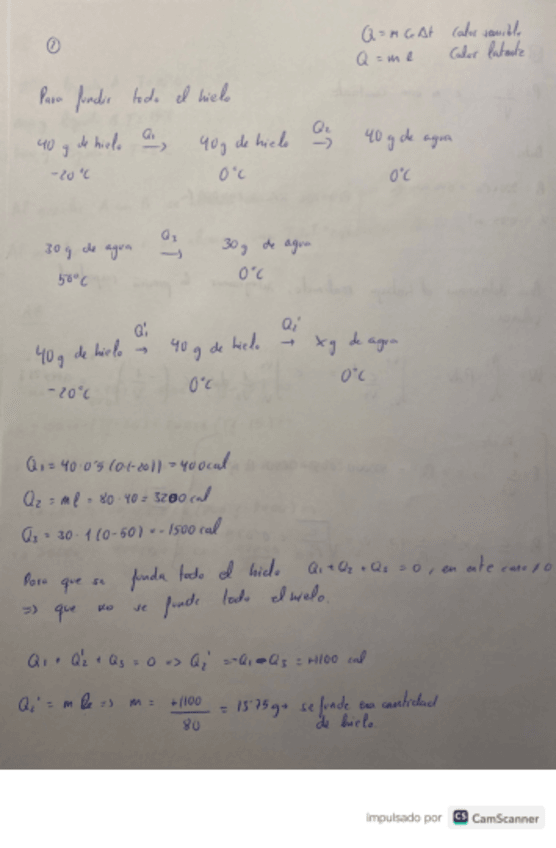 ①
Q = m c Δt Calor sensible
Q = m l Calor latente
Para fundir todo el hielo
40 g de hielo Q₁→ 40 g de hielo Q₂→ 40 g de agua
-20°C 0°C 0°C
30 g de agua Q₃→ 30 g de agua
50°C 0°C
40 g de hielo Q₁'→ 40 g de hielo Q₂'→ x g de agua
-20°C 0°C 0°C
Q₁ = 40·0'5 (0-(-20)) = 400 cal
Q₂ = m l = 80·40 = 3200 cal
Q₃ = 30·1 (0-50) = -1500 cal
Para que se funda todo el hielo Q₁+Q₂+Q₃ = 0, en este caso ≠0
=> que no se funde todo el hielo.
Q₁ + Q₂' + Q₃ = 0 => Q₂' = -Q₁ - Q₃ = +1100 cal
Q₂' = m l => m = +1100 / 80 = 13'75 g se funde esa cantidad
de hielo
impulsado por CS CamScanner